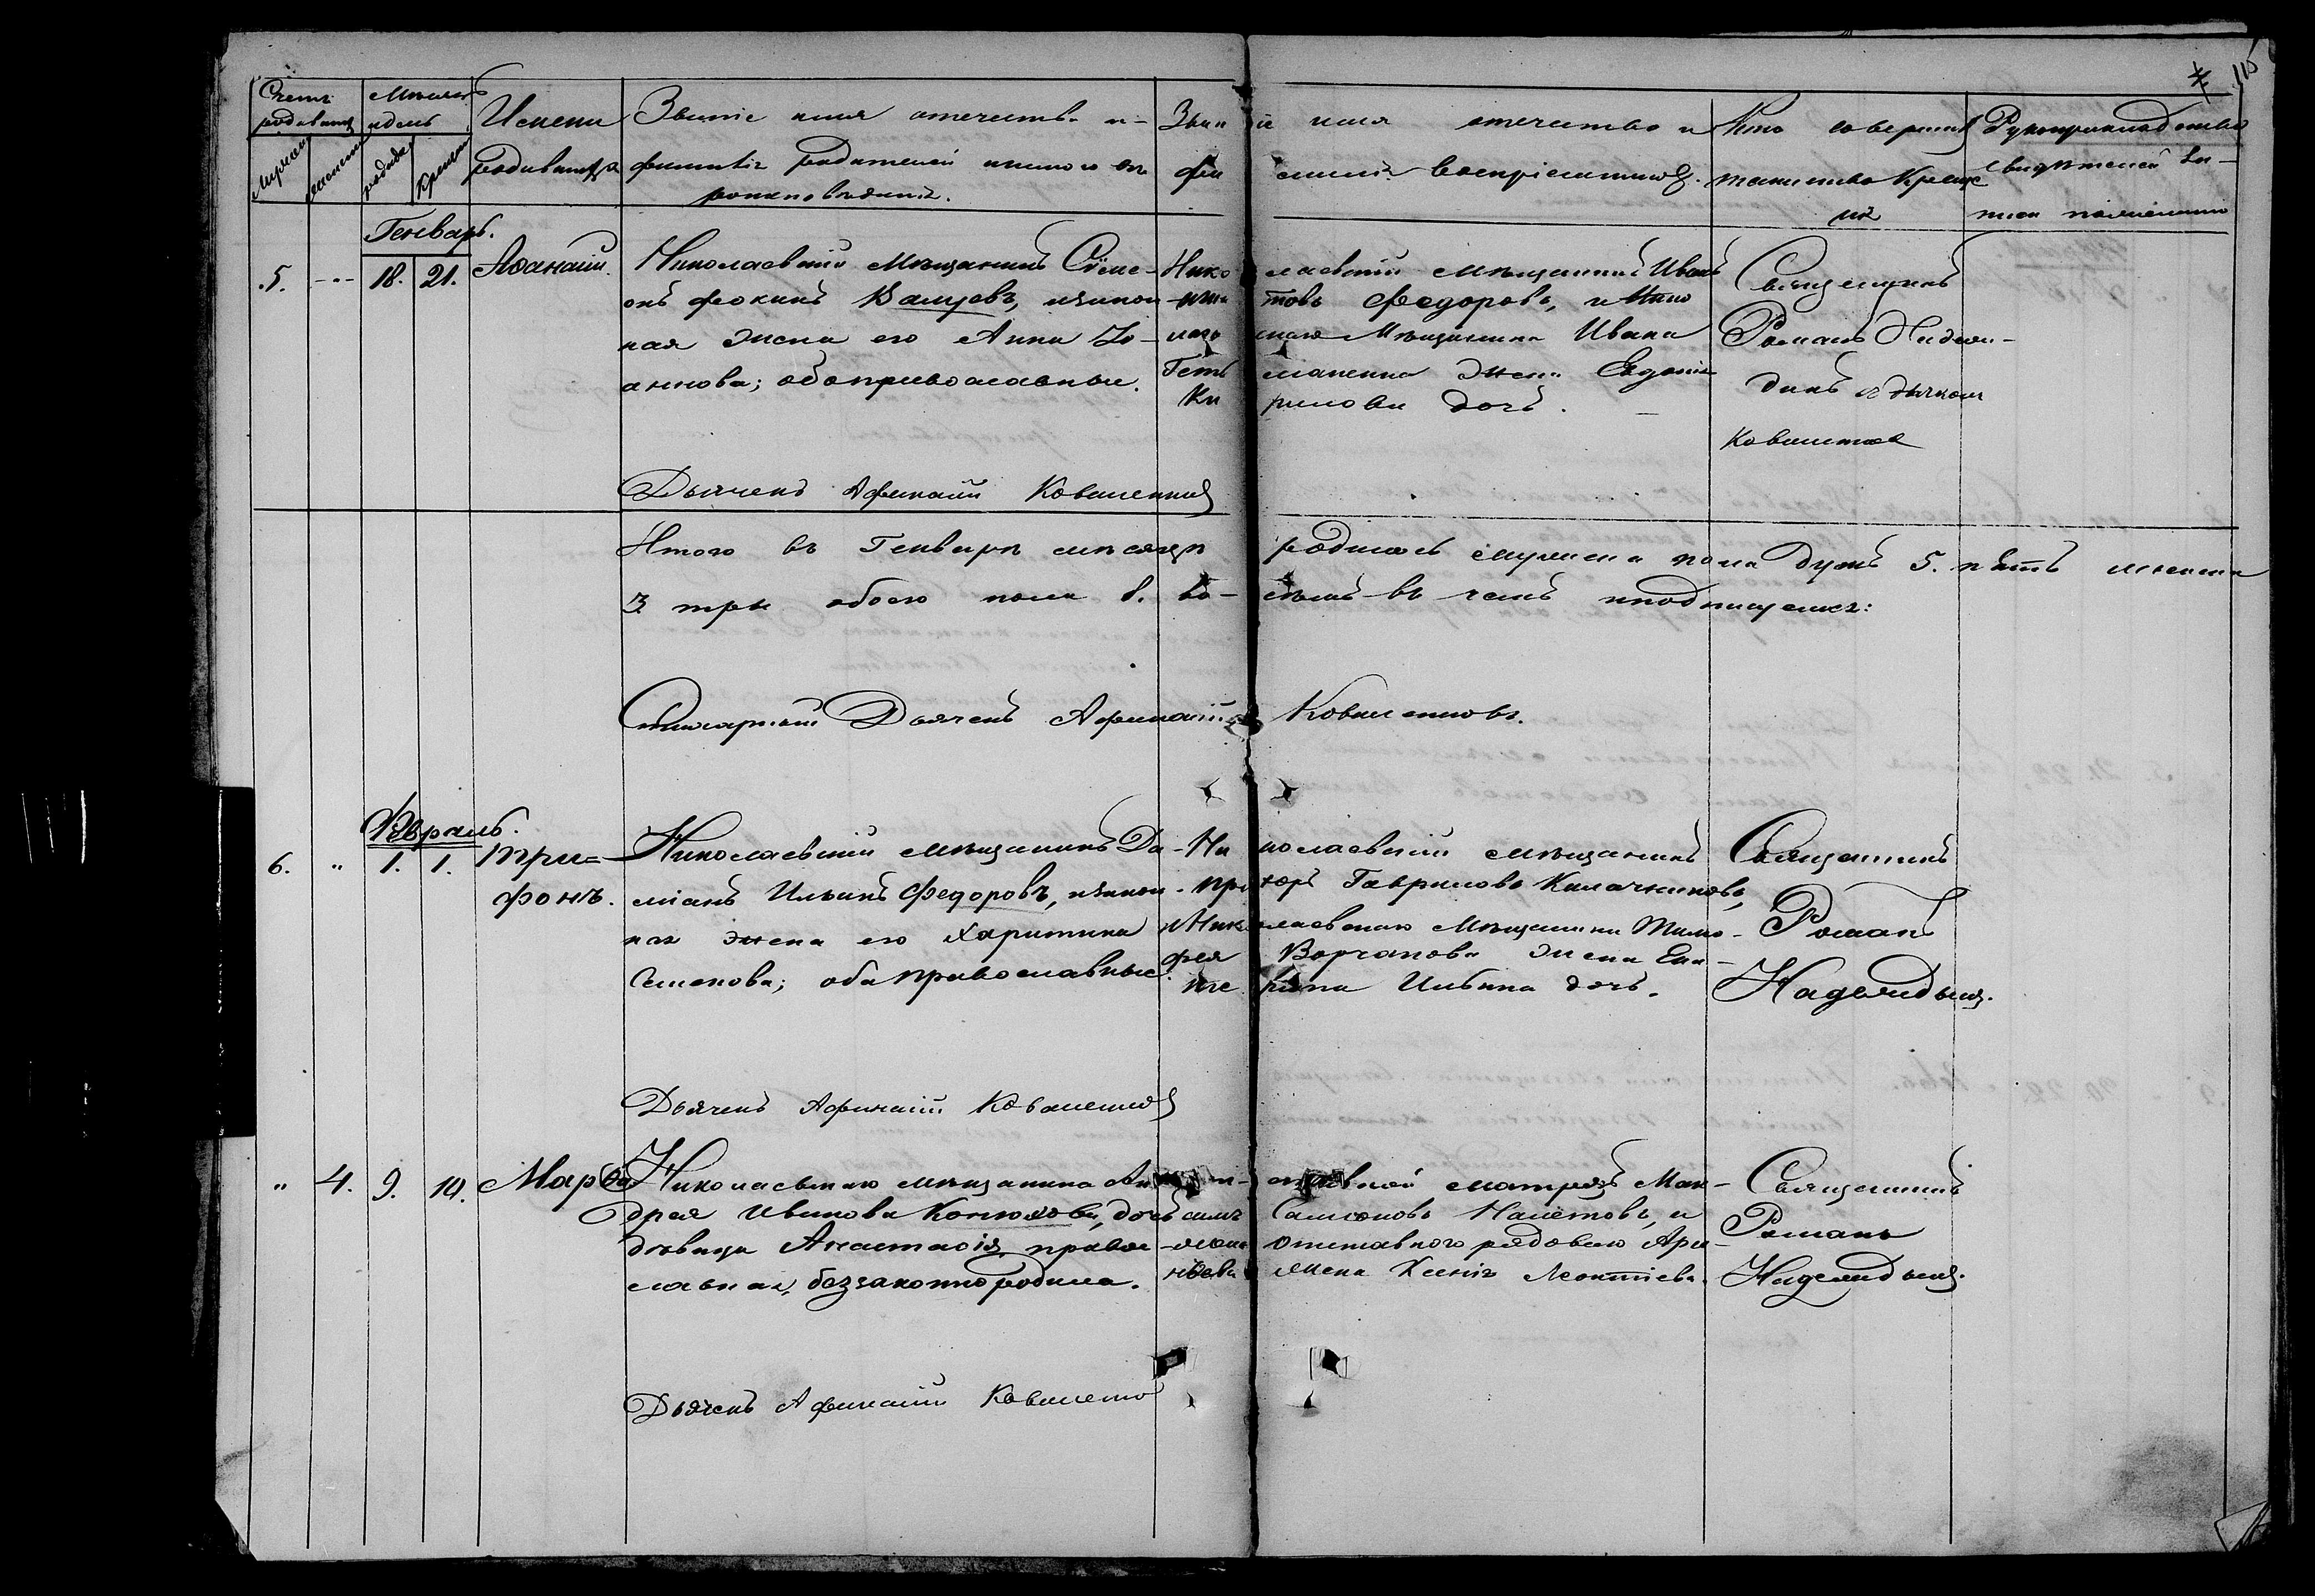 115
Счетъ родившихся
Мѣсяцъ и день
Имена родившихся
Званіе имя отчество и фамилія родителей и какого вѣроисповѣданія.
Званіе имя отчество и фамилія воспріемниковъ.
Кто совершалъ таинство крещенія
Рукоприкладство свидѣтелей
Генварь.
5. 18. 21. Аѳанасій.
Николаевскій мѣщанинъ Сѵме-
онъ Фокинъ Ващевъ, и закон-
ная жена его Анна Іо-
аннова; оба православные.
Николаевскій мѣщанинъ Иванъ
Федоровъ, и Нико-
мѣщанина Ивана
жена Евдокія
Кирилова дочь.
Священникъ
Романъ Надеж-
динъ съ дьячкомъ
Дьячекъ Афанасій Коваленковъ
Итого въ Генварѣ мѣсяцѣ родилось мужеска пола душъ 5. пять женска
3 три обоего пола 8. восемь въ чемъ и подпишемся:
Дьячекъ Афанасій Коваленковъ.
Февраль.
6. " 1. 1. Три=
фонъ.
Николаевскій мѣщанинъ Да-
міанъ Ильинъ Федоровъ, и закон-
ная жена его Харитина
Семенова; оба православные.
Николаевскій мѣщанинъ
Гавриловъ Калачниковъ,
и Николаевскаго мѣщанина Тимо-
фея Ворчанова жена Ека-
терина Ильина дочь.
Священникъ
Романъ
Надеждинъ.
Дьячекъ Афанасій Коваленковъ
" 4. 9. 10. Марѳа
Николаевскаго мѣщанина Ан-
дрея Иванова Конюхова, дочь
дѣвица Анастасія, право-
славная, беззаконнородила.
матрозъ Мак-
симъ Самсоновъ и
отставного рядового
жена Ксенія Леонтіева.
Священникъ
Романъ
Надеждинъ.
Дьячекъ Афанасій Коваленко